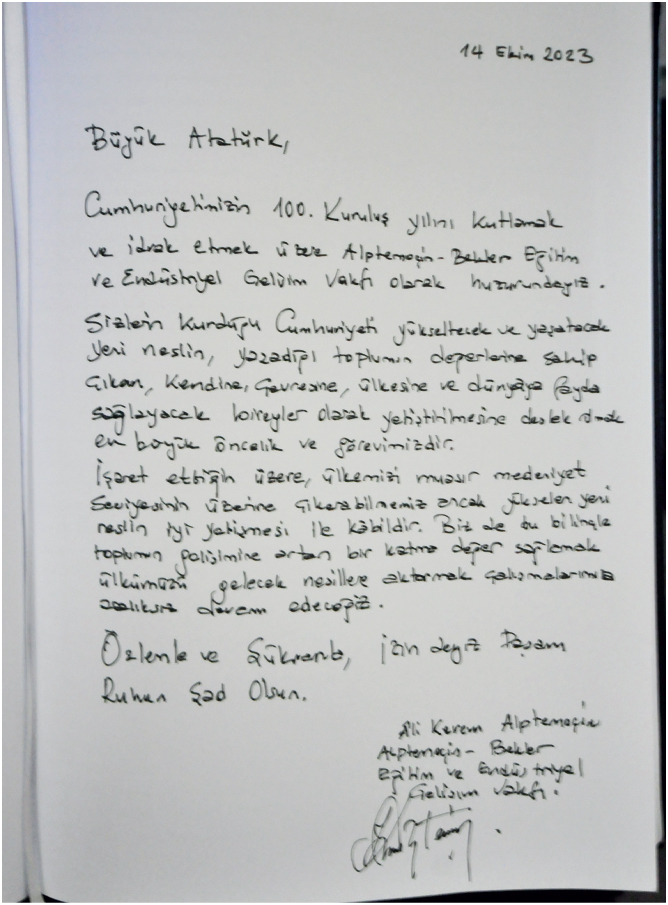 14 Ekim 2023
Büyük Atatürk,
Cumhuriyetimizin 100. Kuruluş yılını kutlamak
ve idrak etmek üzere Alptemoçin-Bekler Eğitim
ve Endüstriyel Gelişim Vakfı olarak huzurundayız.
Sizlerin Kurduğu Cumhuriyeti yükseltecek ve yaşatacak
yeni neslin, yaşadığı toplumun değerlerine sahip
çıkan, kendine, çevresine, ülkesine ve dünyaya fayda
sağlayacak bireyler olarak yetiştirilmesine destek olmak
en büyük öncelik ve görevimizdir.
İşaret ettiğin üzere, ülkemizi muasır medeniyet
seviyesinin üzerine çıkarabilmemiz ancak yükselen yeni
neslin iyi yetişmesi ile kâbildir. Biz de bu bilinçle
toplumun gelişimine artan bir katma değer sağlamak
ülkümüzü gelecek nesillere aktarmak çalışmalarımıza
aralıksız devam edeceğiz.
Özlemle ve Şükranla, izindeyiz Paşam
Ruhun Şad Olsun.
Ali Kerem Alptemoçin
Alptemoçin-Bekler
Eğitim ve Endüstriyel
Gelişim Vakfı.